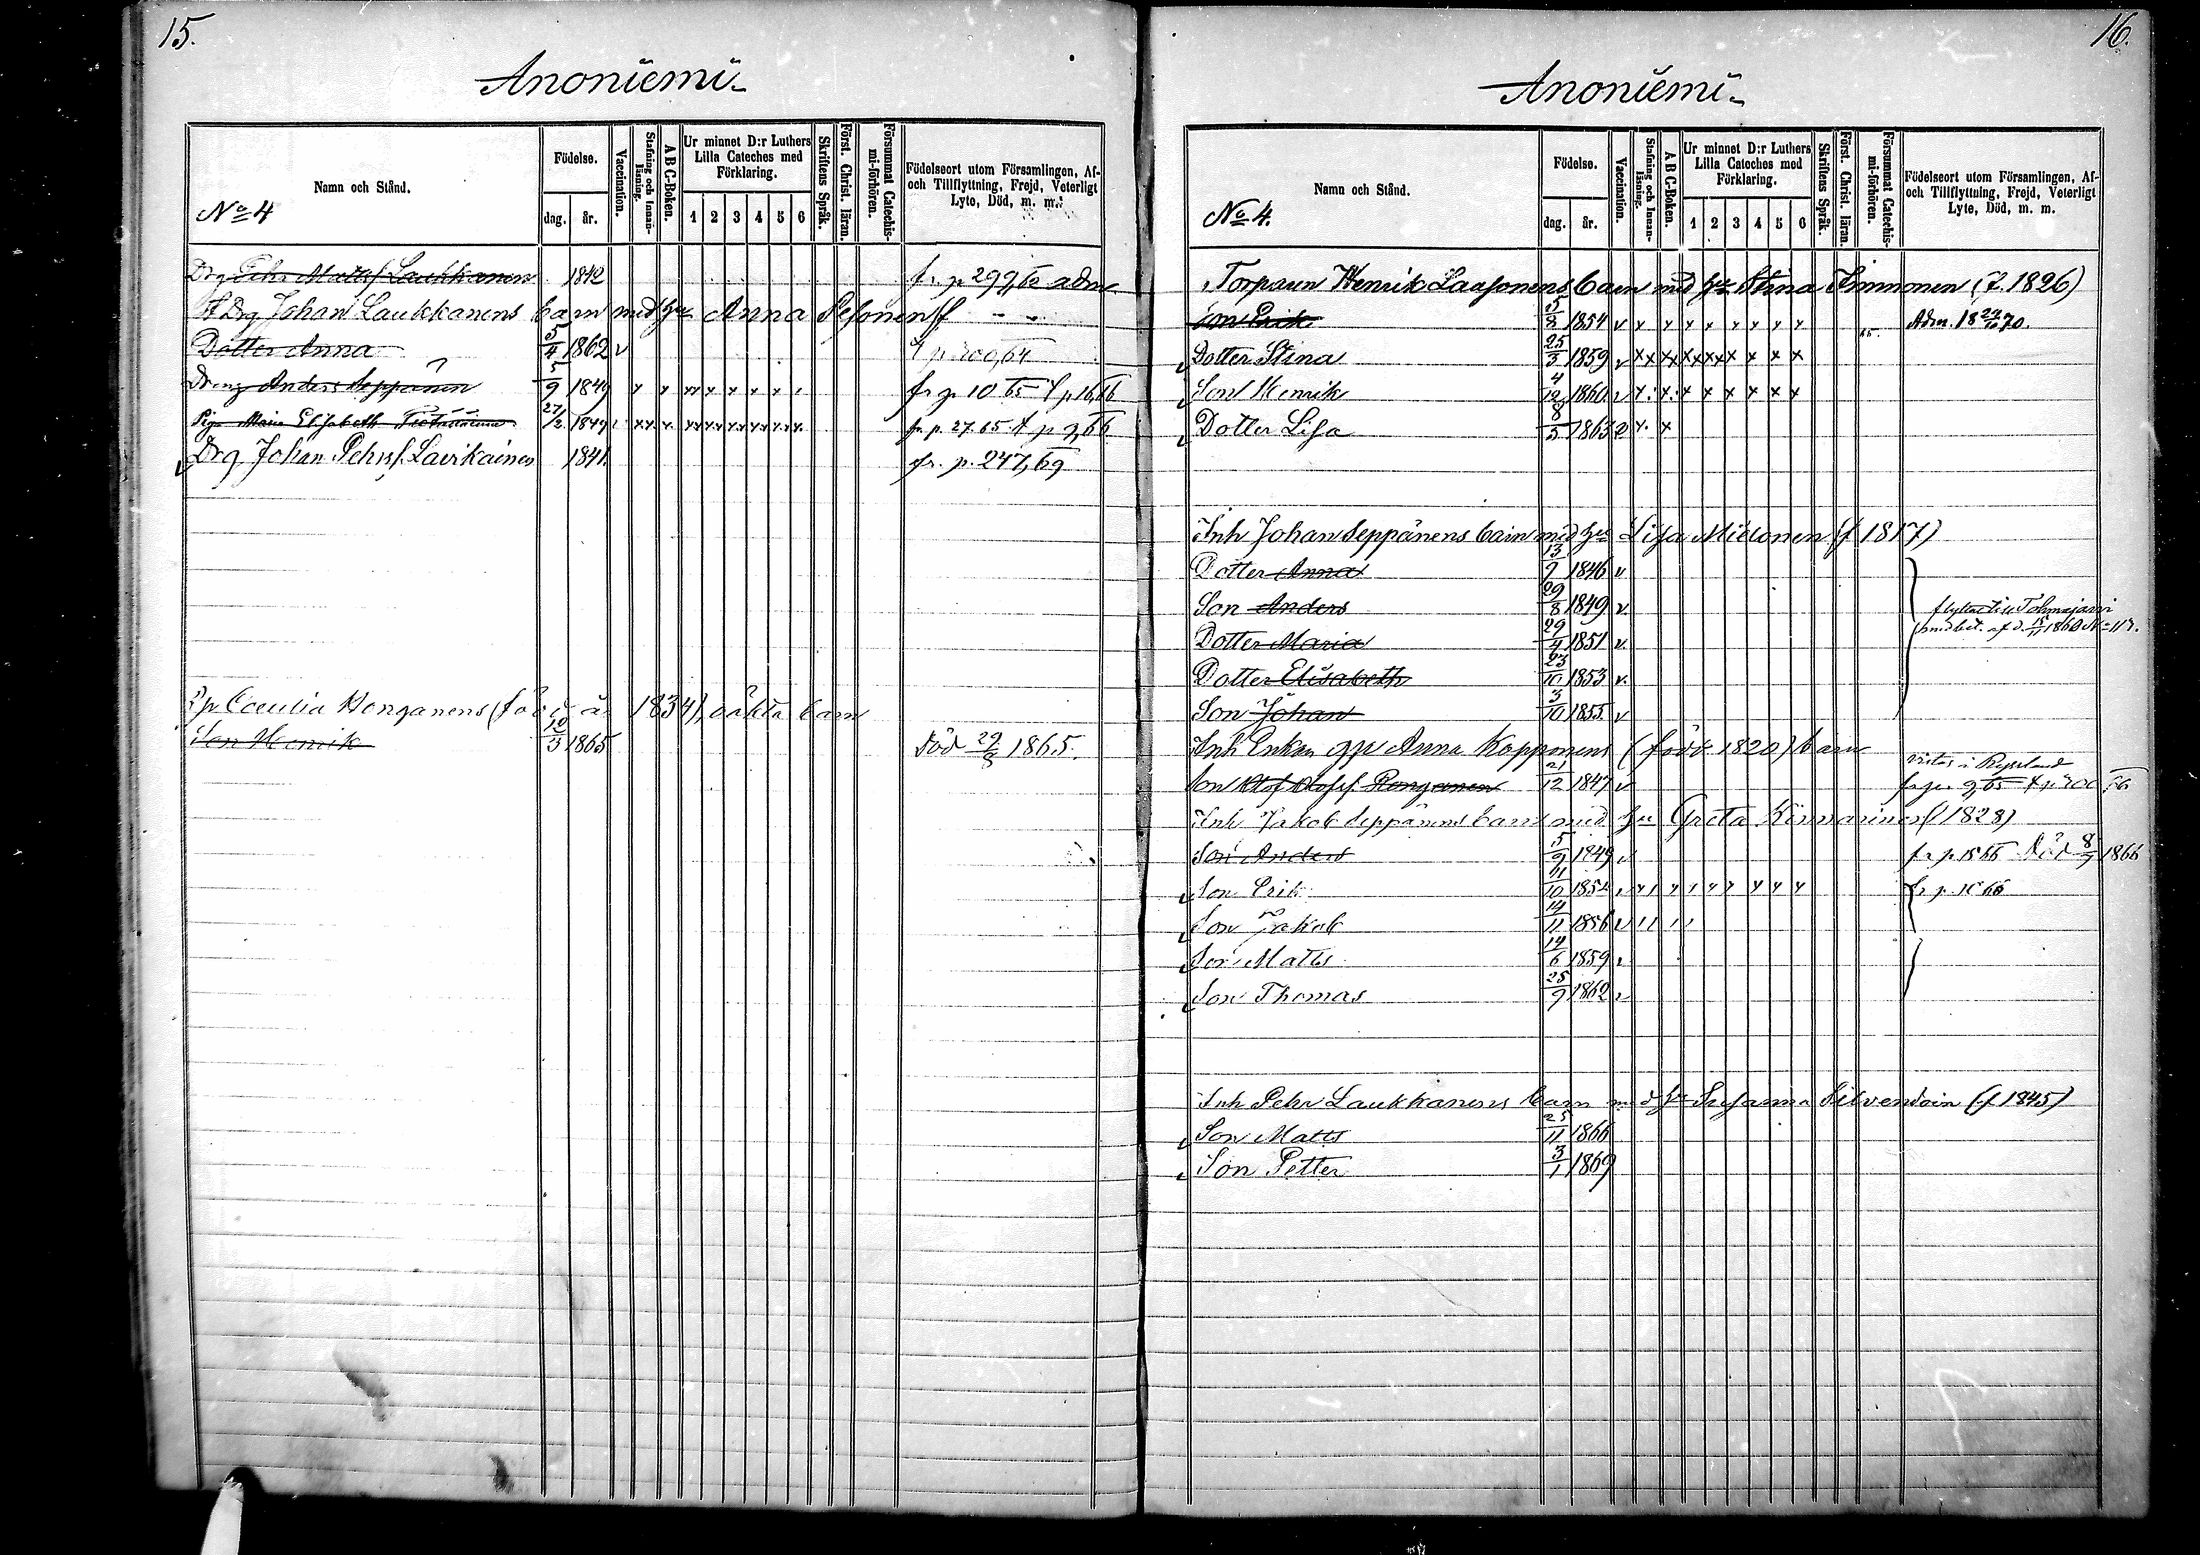 15.
Anoniemi
Namn och Stånd.
No 4
Födelse.
dag.
år.
Vaccination.
Stafning och Innan-läsning.
A B C-Boken.
Ur minnet D:r Luthers
Lilla Cateches med
Förklaring.
1 2 3 4 5 6
Skriftens Språk.
Först. Christ. läran.
Försummat Catechis-mi-förhören.
Födelseort utom Församlingen, Af-
och Tillflyttning, Frejd, Veterligt
Lyte, Död, m. m.
Drg Pehr Mattsf Laukkanen 1842 fr p 299,65 adm
Drg Johan Laukkanens barn med hu Anna Pesonen
Dotter Anna 5/4 1862 v
Dreng Anders Seppänen 5/9 1849 fr p 10 65 t p 16,66
Piga Maria Elisabeth 27/2 1849 fr p. 27.65 t p 9,66
Drg Johan Pehrs. Lavikainen 1841. fr. p. 247,69
Cecilia Honganens (född år 1834), oäkta barn
Son Henrik 10/3 1865 Död 29/8 1865.
16.
Anoniemi
Namn och Stånd.
No 4.
Födelse.
dag.
år.
Vaccination.
Stafning och Innan-läsning.
A B C-Boken.
Ur minnet D:r Luthers
Lilla Cateches med
Förklaring.
1 2 3 4 5 6
Skriftens Språk.
Först. Christ. läran.
Försummat Catechis-mi-förhören.
Födelseort utom Församlingen, Af-
och Tillflyttning, Frejd, Veterligt
Lyte, Död, m. m.
Torparen Henrik Laasonens barn med hu Stina Timonen (f. 1826)
Son Erik 5/8 1854 v x x x x x x x x Adm. 18 24/10 70.
Dotter Stina 25/3 1859 v xx xx xx xx x x x x
Son Henrik 4/12 1860 v x x x x x x x x
Dotter Lisa 8/5 1863 v x x
Inh Johan Seppänens barn med hu Lisa Mielonen (f 1817)
Dotter Anna 13/9 1846 v
Son Anders 29/8 1849 v.
flyttat till Tohmajärvi
med bet. af d. 15/11 1860 No 117.
Dotter Maria 29/4 1851 v.
Dotter Elisabeth 23/10 1853 v.
Son Johan 3/10 1855. v
Inh Enkan Anna Kopponens (född 1820) barn
vistas i Ryssland
Son Olof Olofsf Ronganen 21/12 1847 v fr p. 9,65 t p. 700 66
Inh Jakob Seppänens barn med hu Greta Kinnarinen (1828)
Son Anders 5/9 1849 v fr p. 15 66 Död 8/7 1866
Son Erik 11/10 1852 v fr p. 10 65
Son Jakob 14/11 1856 v
Son Matts 14/6 1859 v
Son Thomas 25/9 1862 v
Inh Pehr Laukkanens barn med hu Susanna Silvendoin (f 1845)
Son Matts 25/11 1866
Son Petter 3/1 1869